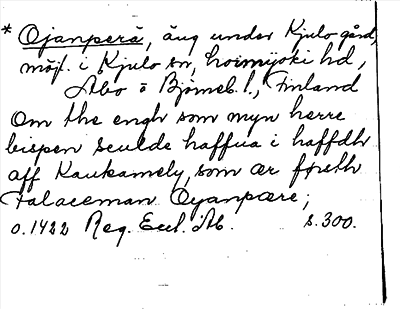 * Ojanperä, äng under Kjulo gård,
möjl. i Kjulo sn, hvimijoki hd,
Åbo o Björneb. l., Finland
Om the engh som myn herre
bispen sculde haffua i haffdh
aff Kaukamely, som ær føreth
Falaceman Oyanpære;
o. 1422 Reg. Eccl. Ab. s. 300.